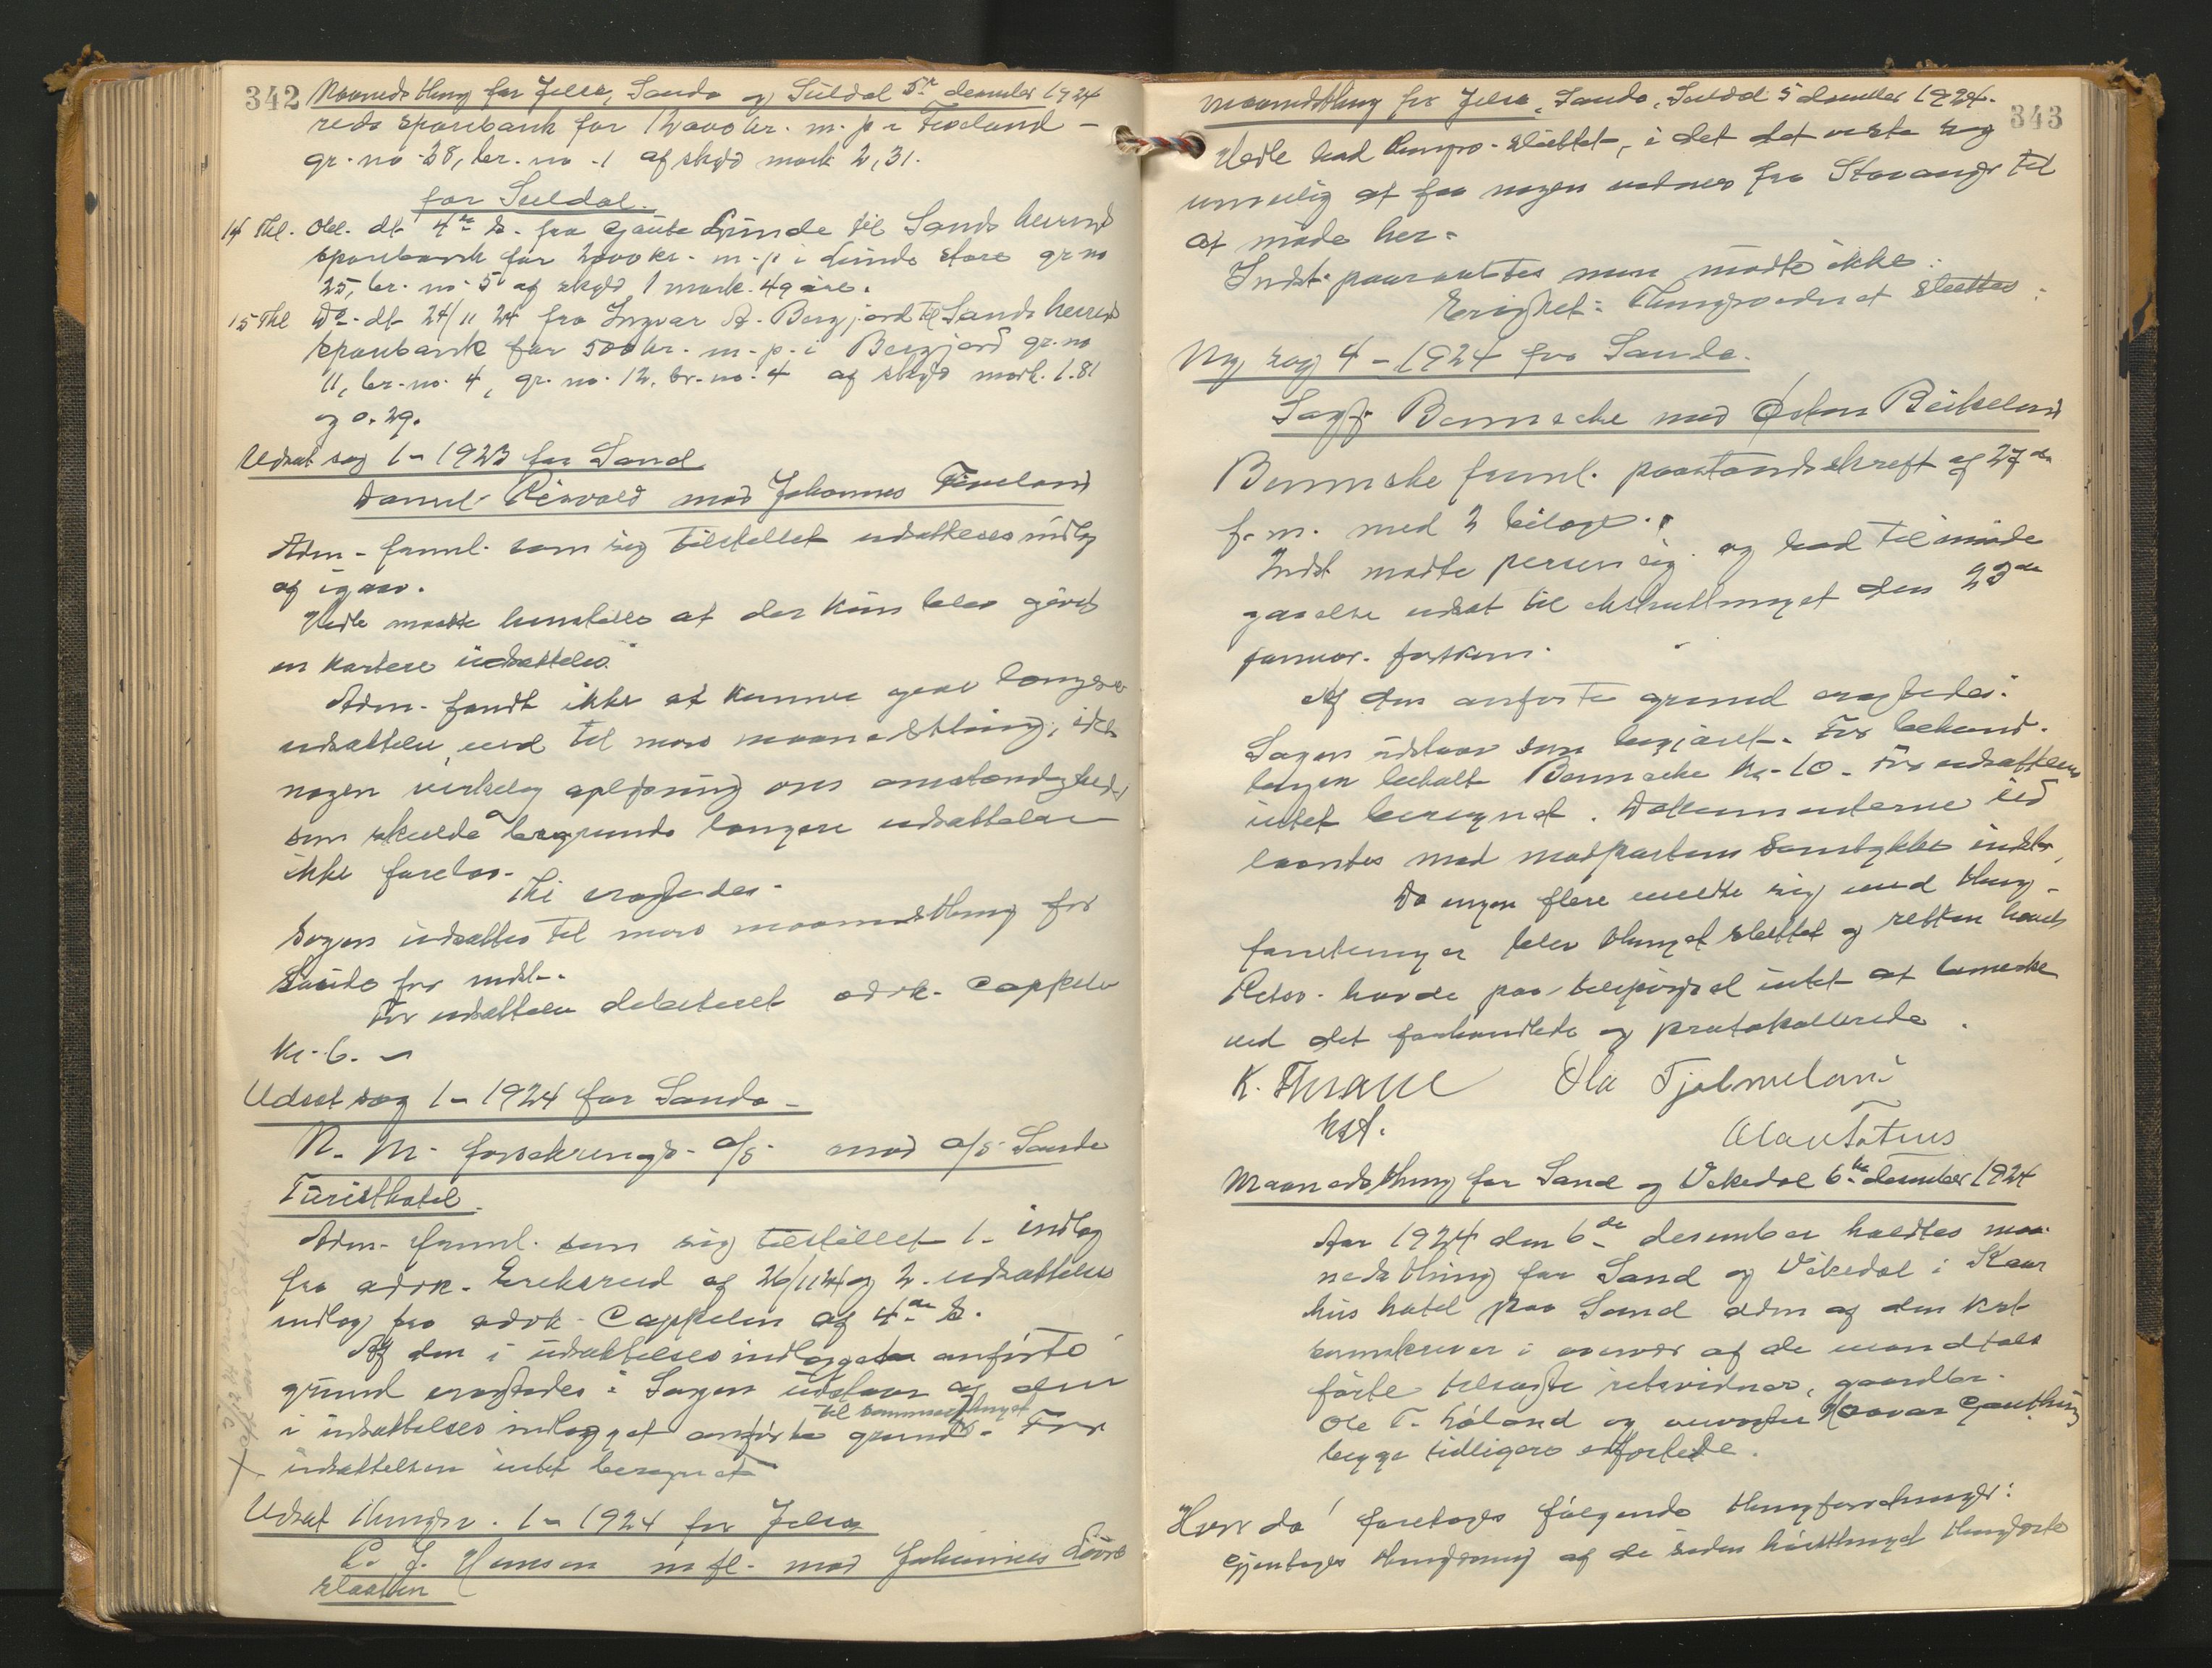 342 Maanedsthing for Jelsa, Saude og Suldal 5te december 1924
reds sparebank for 12000 kr. m. p. i
gr. no 38, br. no. 1 af skyld mark 2,31.
for Suldal.
14 Thl. Obl. dt. 4de ds. fra Gaute Lunde til Sands herreds
sparebank for 2000 kr. m. p. i Lunde store gr no
25, br. no. 5 af skyld 1 mark 49 øre.
15 Thl Do. dt. 24/11 24 fra Ingvar A. Bergjord til Sands herreds
sparebank for 500 kr. m. p. i Bergjord gr. no
11, br. no. 4, gr. no. 12, br. no. 4 af skyld mark 1.81
og 0.29.
Udsat sag 1 - 1923 for Sand
Risvold mod Johannes
Adm. freml. som sig tilstillet udsættelsesindlæg
af igaar.
Vedk. maatte henstille at der kun blev givet
en kortere udsættelse.
Adm. fandt ikke at kunne give længere
udsættelse end til mars maanedsthing, idet
nogen virkelig oplysning om omstændigheder
som skulde begrunde længere udsættelse
ikke forelaa.
Thi eragtedes:
Sagen udsættes til mars maanedsthing for
Saude for indst.
For udsættelsen debiteret adv. Cappelen
Kr. 6. -
Udsat sag 1 - 1924 for Saude -
N. M. forsikrings- a/s mod a/s Saude
Turisthotel.
Adm. freml. som sig tilstillet 1. indlæg
fra adv. Eriksrud af 26/11 24 og 2. udsættelses
indlæg fra adv. Cappelen af 4de ds.
Af den i udsættelsesindlægget anførte
grund eragtedes: Sagen udstaar af den
til sommerthinget
i udsættelsesindlægget anførte grund. For
udsættelsen intet beregnet
Udsat thingsv. 1 - 1924 for Jelsa
C. J. Hansen m. fl. mod Johannes
slaatten
Maanedsthing for Jelsa, Saude, Suldal 5 december 1924.
343
Vedk. bad thingsv. sluttet, i det det viste sig
umulig at faa nogen vidner fra Stavanger til
at møde her.
Indst. paaraabtes men mødte ikke.
Eragtet: Thingsvidnet sluttes.
Ny sag 4 - 1924 for Saude.
Sagf. Bennecke mod Østen Birkeland
Bennecke freml. paastandsskrift af 27de
f. m. med 2 bilage.
Indst. mødte personlig og bad til imøde
gaaelse udsat til ekstrathinget den 23de
januar førstkom.
Af den anførte grund eragtedes:
Sagen udstaar som begjæret. For behand-
lingen betalt Bennecke kr. 10. For udsættelsen
intet beregnet. Dokumenterne ud
laantes med modpartens samtykke indst.
Da ingen flere meldte sig med thing-
forretninger blev thinget sluttet og retten hævet
Retsv. havde paa tilspørgsel intet at bemerke
ved det forhandlede og protokollerede.
K. Thrane Ola Tjelmeland
kst.
Olav Tøtius
Maanedsthing for Sand og Vikedal 6te december 1924
Aar 1924 den 6te desember holdtes maa-
nedsthing for Sand og Vikedal i Kaar
hus hotel paa Sand adm af den kst
sorenskriver i overvær af de mandtals
førte tilsagte retsvidner, gaardbr.
Ole T. Løland og Haavar Gauthun
begge tidligere edfæstede.
Hvor da! foretoges følgende thingforretninger:
Gjentages thinglysning af de siden høstthinget thinglæste